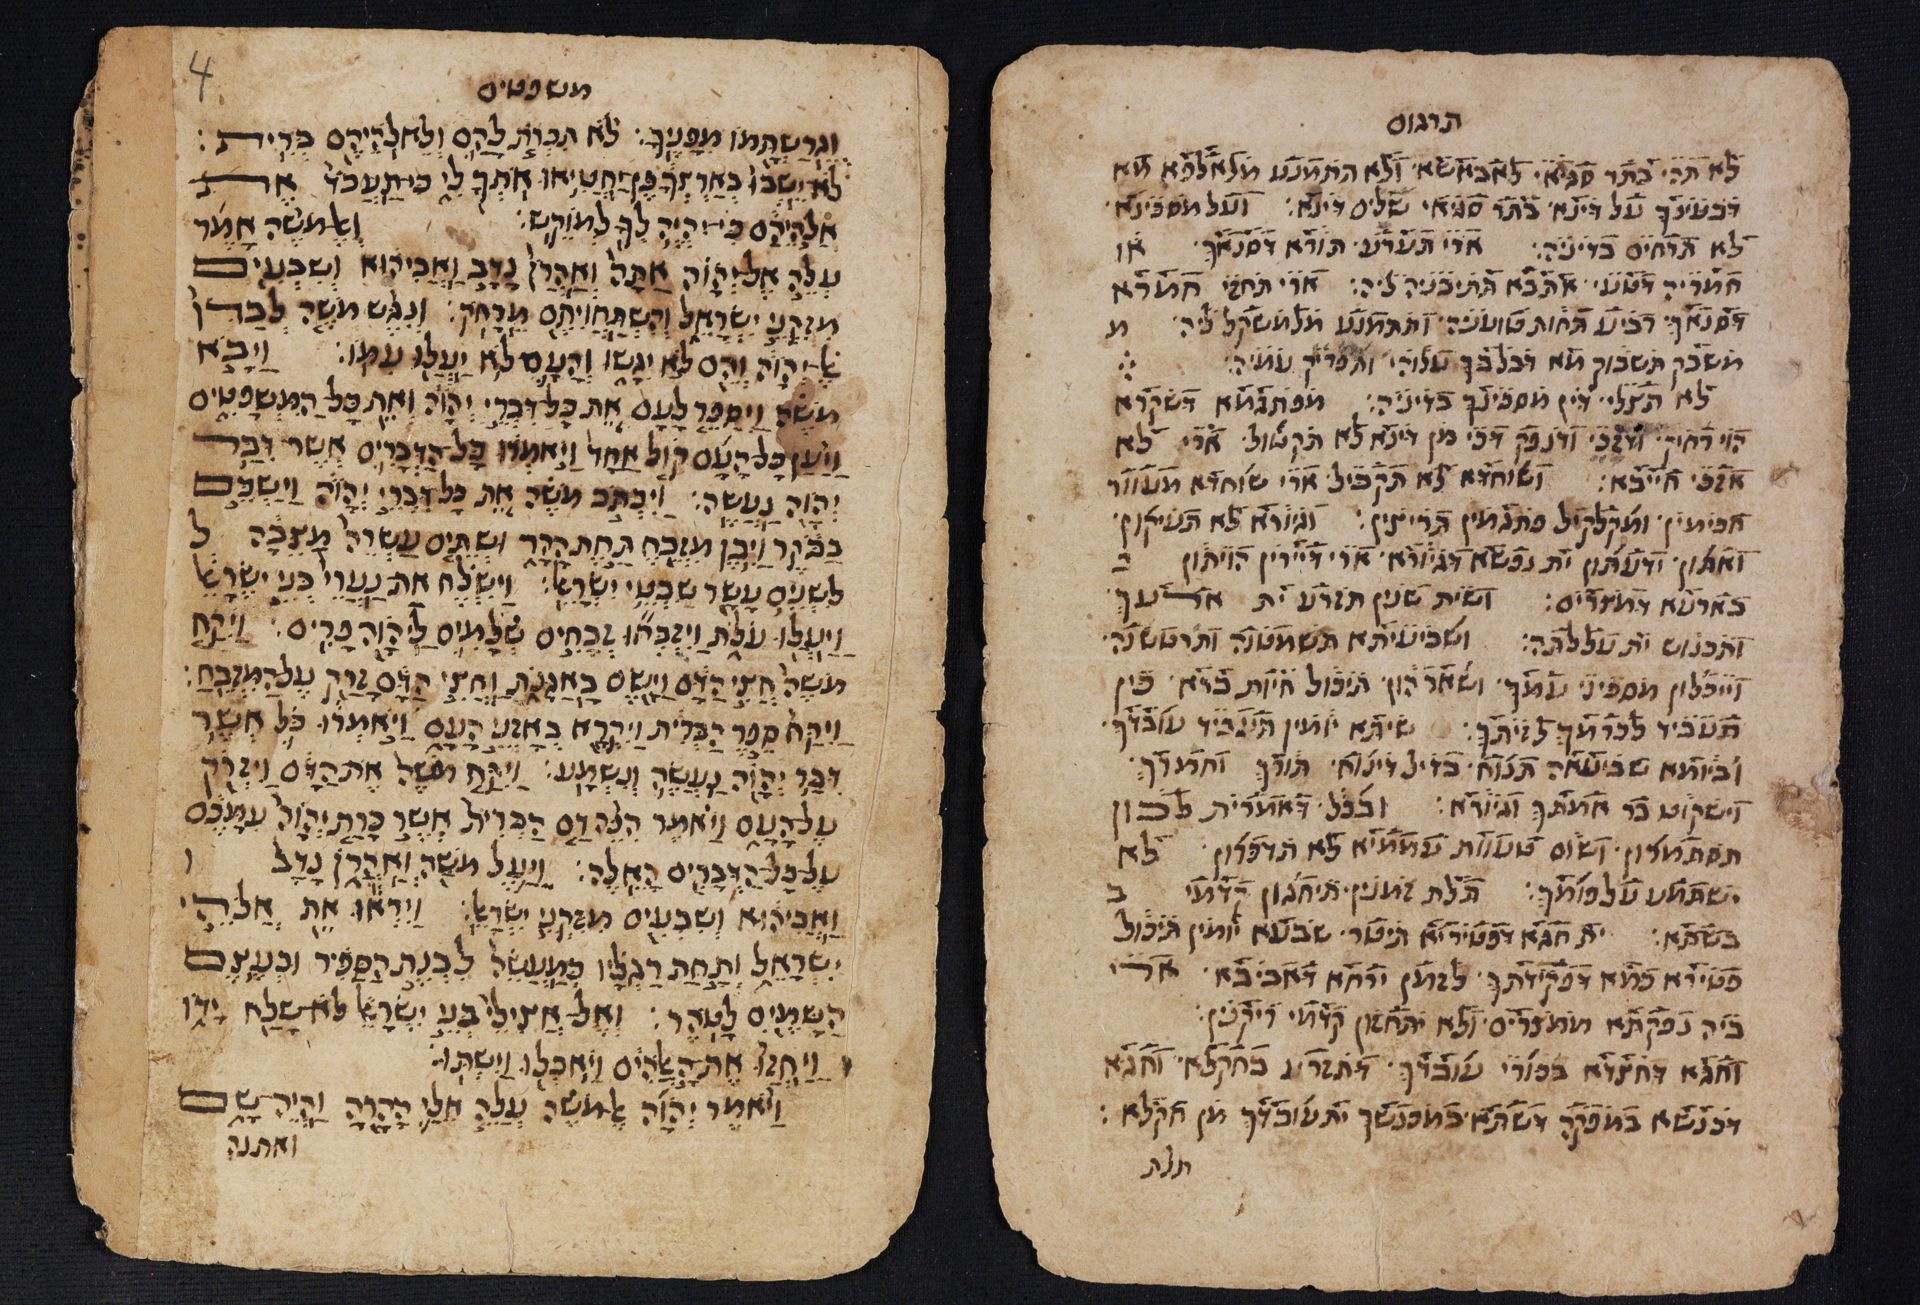 תרגום
לא תהי בתר סגיאי לאבאשא ולא תתמנע מלאלפא מא
דבעינך על דינא בתר סגיאי שלים דינא: ועל מסכינא
לא תרחים בדיניה: ארי תערע תורא דסנאך או
חמריה דטעי אתבא תתיבניה ליה: ארי תחזי חמרא
דסנאך רביע תחות טועניה ותתמנע מלמשקל ליה מ
משבק תשבוק מא דבלבך עלוהי ותפריק עמיה:
לא תצלי דין מסכינך בדיניה: מפתגמא דשקרא
הוי רחיק ודזכי ודנפק דכי מן דינא לא תקטול ארי לא
אזכי חייבא: ושוחדא לא תקביל ארי שוחדא מעוור
חכימין ומקלקיל פתגמין תריצין: וגיורא לא תעיקון
ואתון ידעתון ית נפשא דגיורא ארי דיירין הויתון ב
בארעא דמצרים: ושית שנין תזרע ית ארעך
ותכנוש ית עללתה: ושביעיתא תשמטנה ותרטשנה
וייכלון מסכיני עמך ושארהון תיכול חיות ברא כין
תעביד לכרמך לזיתך: שיתא יומין תעביד עובדך
וביומא שביעאה תנוח בדיל דינוח תורך וחמרך
וישקוט בר אמתך וגיורא: ובכל דאמרית לכון
תסתמרון ושום טעוות עממיא לא תדכרון לא
ישתמע על פומך: תלת זמנין תיחגון קדמי ב
בשתא: ית חגא דפטיריא תיטר שבעא יומין תיכול
פטירא כמא דפקידתך לזמן ירחא דאביבא ארי
ביה נפקתא ממצרים ולא יתחזון קדמי ריקנין:
וחגא דחצדא בכורי עובדך דתזרע בחקלא וחגא
דכנשא במפקה דשתא במכנשך ית עובדך מן חקלא:
תלת
4
משפטים
וגרשתמו מפניך: לא תכרת להם ולאלהיהם ברית:
לא ישבו בארצך פן יחטיאו אתך לי כי תעבד את
אלהיהם כי יהיה לך למוקש: ואל משה אמר
עלה אל יהוה אתה ואהרן נדב ואביהוא ושבעים
מזקני ישראל והשתחויתם מרחק: ונגש משה לבדו
אל יהוה והם לא יגשו והעם לא יעלו עמו: ויבא
משה ויספר לעם את כל דברי יהוה ואת כל המשפטים
ויען כל העם קול אחד ויאמרו כל הדברים אשר דבר
יהוה נעשה: ויכתב משה את כל דברי יהוה וישכם
בבקר ויבן מזבח תחת ההר ושתים עשרה מצבה ל
לשנים עשר שבטי ישראל: וישלח את נערי בני ישראל
ויעלו עלת ויזבחו זבחים שלמים ליהוה פרים: ויקח
משה חצי הדם וישם באגנת וחצי הדם זרק על המזבח:
ויקח ספר הברית ויקרא באזני העם ויאמרו כל אשר
דבר יהוה נעשה ונשמע: ויקח משה את הדם ויזרק
על העם ויאמר הנה דם הברית אשר כרת יהוה עמכם
על כל הדברים האלה: ויעל משה ואהרן נדב ו
ואביהוא ושבעים מזקני ישראל: ויראו את אלהי
ישראל ותחת רגליו כמעשה לבנת הספיר וכעצם
השמים לטהר: ואל אצילי בני ישראל לא שלח ידו
ויחזו את האלהים ויאכלו וישתו:
ויאמר יהוה אל משה עלה אלי ההרה והיה שם
ואתנה